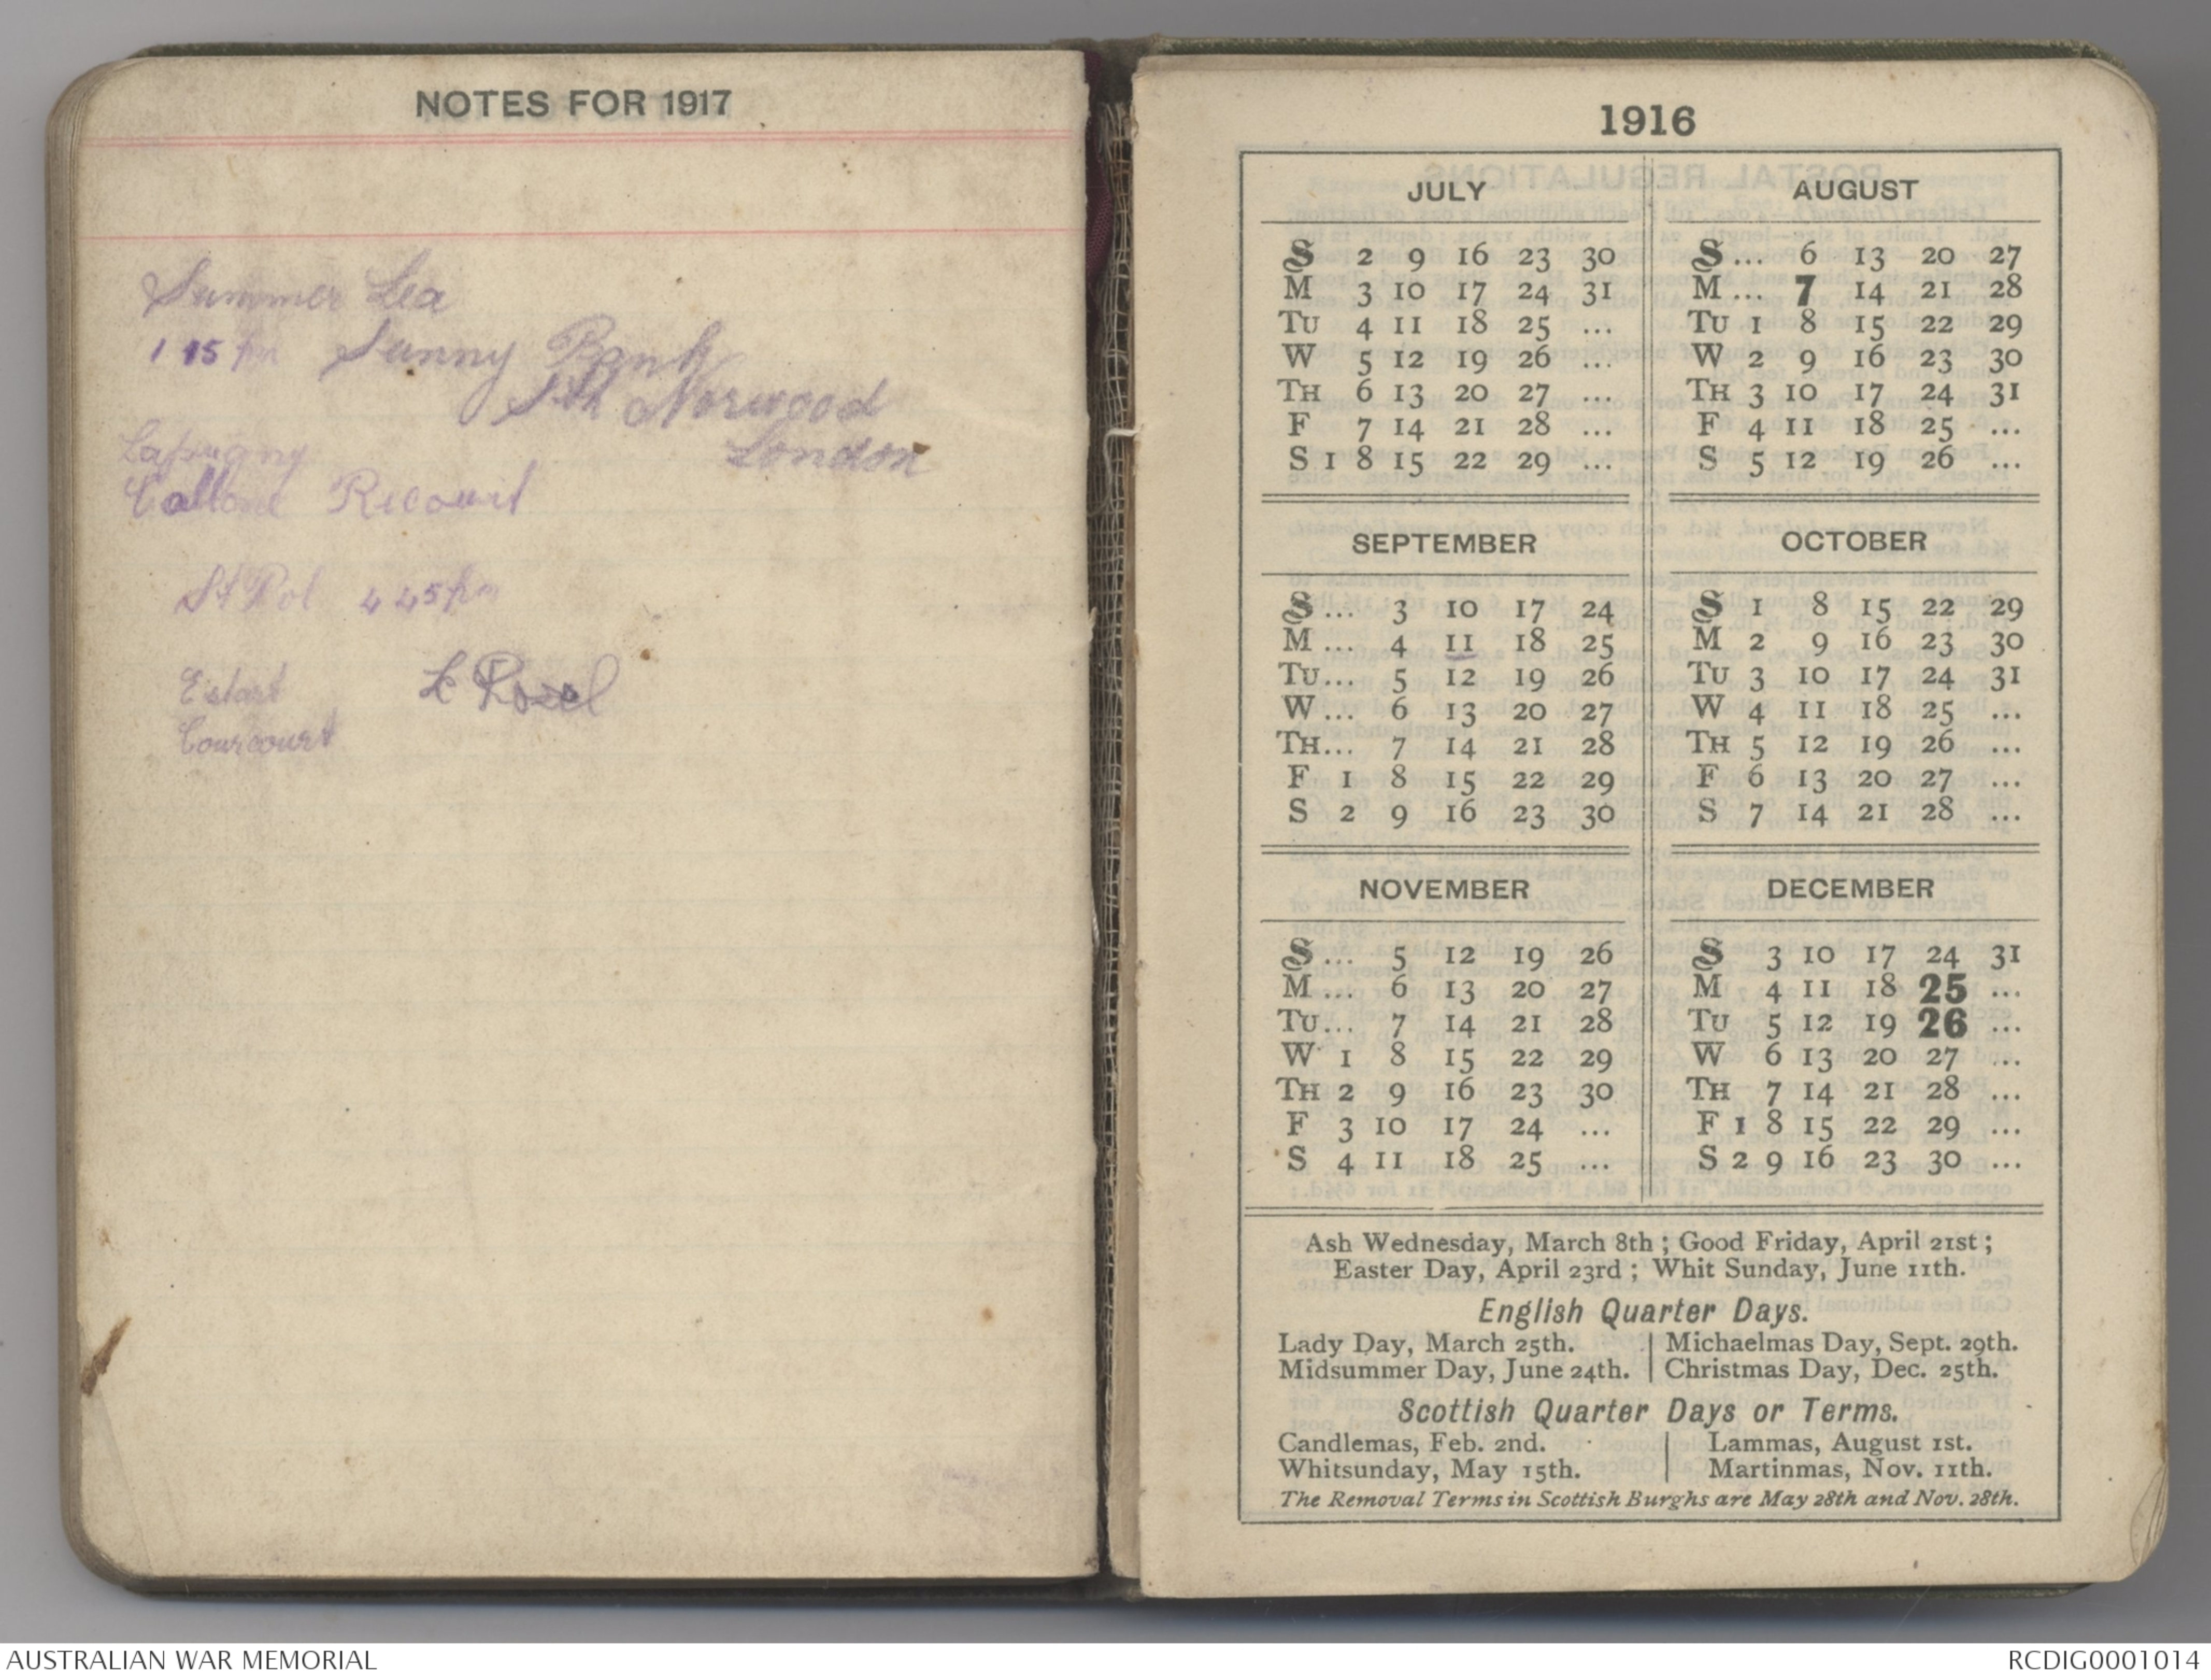 NOTES FOR 1917
Summer Lea
1 15 pm Sunny Bank
Sth Norwood
London
Lapugny
Callone Ricouit
St Pol 4 45 pm
Estart Le Rozel
Courcourt
1916
JULY
S 2 9 16 23 30
M 3 10 17 24 31
TU 4 11 18 25 ...
W 5 12 19 26 ...
TH 6 13 20 27 ...
F 7 14 21 28 ...
S 1 8 15 22 29 ...
AUGUST
S ... 6 13 20 27
M ... 7 14 21 28
TU 1 8 15 22 29
W 2 9 16 23 30
TH 3 10 17 24 31
F 4 11 18 25 ...
S 5 12 19 26 ...
SEPTEMBER
S ... 3 10 17 24
M ... 4 11 18 25
TU ... 5 12 19 26
W ... 6 13 20 27
TH ... 7 14 21 28
F 1 8 15 22 29
S 2 9 16 23 30
OCTOBER
S 1 8 15 22 29
M 2 9 16 23 30
TU 3 10 17 24 31
W 4 11 18 25 ...
TH 5 12 19 26 ...
F 6 13 20 27 ...
S 7 14 21 28 ...
NOVEMBER
S ... 5 12 19 26
M ... 6 13 20 27
TU ... 7 14 21 28
W 1 8 15 22 29
TH 2 9 16 23 30
F 3 10 17 24 ...
S 4 11 18 25 ...
DECEMBER
S 3 10 17 24 31
M 4 11 18 25 ...
TU 5 12 19 26 ...
W 6 13 20 27 ...
TH 7 14 21 28 ...
F 1 8 15 22 29 ...
S 2 9 16 23 30 ...
Ash Wednesday, March 8th ; Good Friday, April 21st ;
Easter Day, April 23rd ; Whit Sunday, June 11th.
English Quarter Days.
Lady Day, March 25th. | Michaelmas Day, Sept. 29th.
Midsummer Day, June 24th. | Christmas Day, Dec. 25th.
Scottish Quarter Days or Terms.
Candlemas, Feb. 2nd. | Lammas, August 1st.
Whitsunday, May 15th. | Martinmas, Nov. 11th.
The Removal Terms in Scottish Burghs are May 28th and Nov. 28th.
AUSTRALIAN WAR MEMORIAL
RCDIG0001014